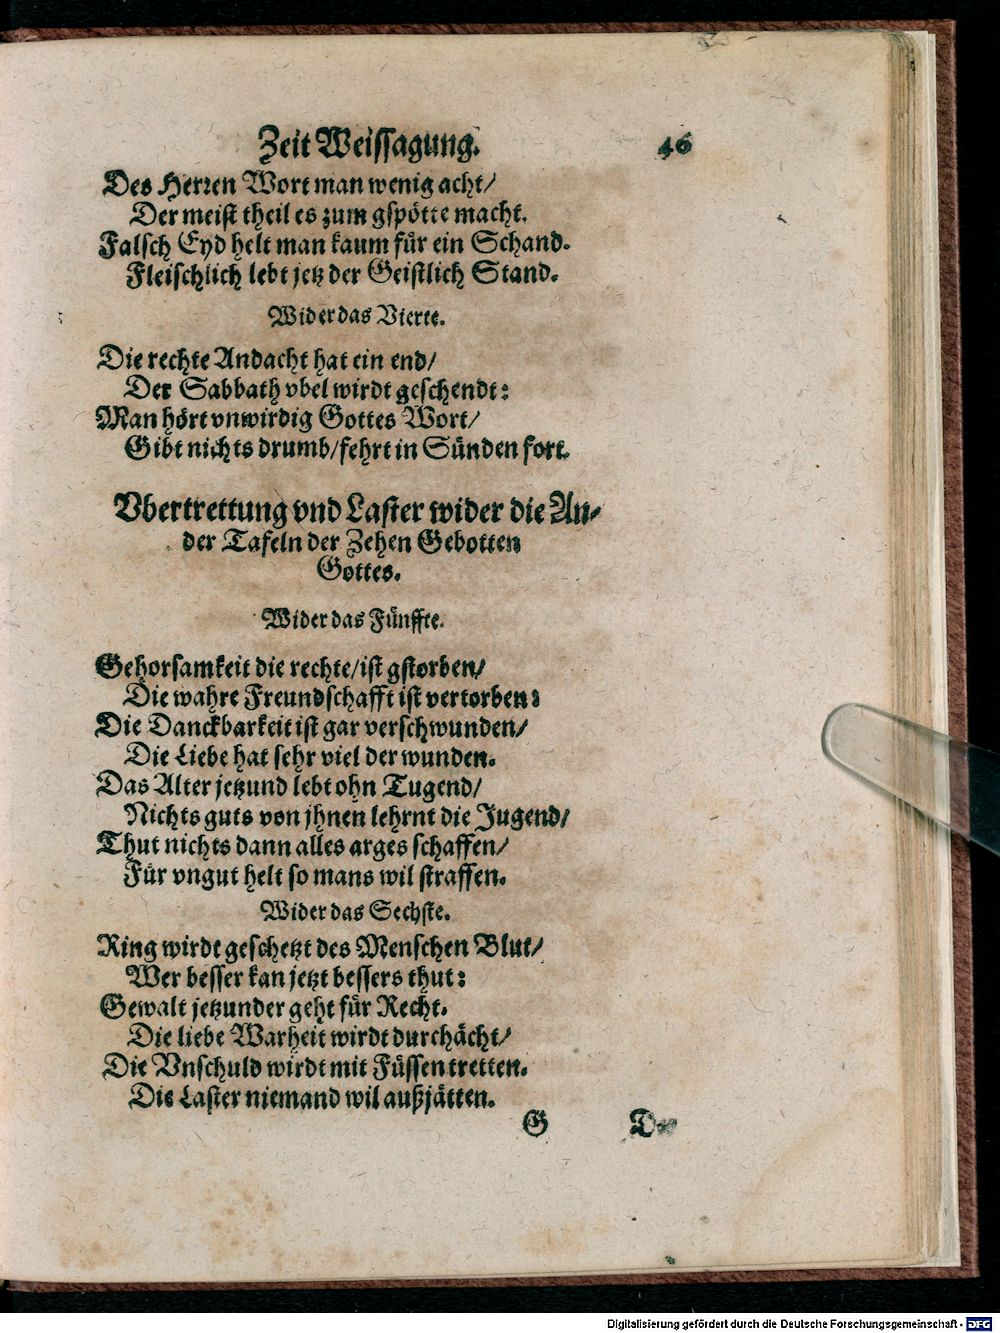 Zeit Weissagung. 46
Des Herren Wort man wenig acht/
Der meist theil es zum gspötte macht.
Falsch Eyd helt man kaum für ein Schand.
Fleischlich lebt jetz der Geistlich Stand.
Wider das Vierte.
Die rechte Andacht hat ein end/
Der Sabbath vbel wirdt geschendt:
Man hört vnwirdig Gottes Wort/
Gibt nichts drumb/fehrt in Sünden fort.
Vbertrettung vnd Laster wider die An-
der Tafeln der Zehen Gebotten
Gottes.
Wider das Fünffte.
Gehorsamkeit die rechte/ist gstorben/
Die wahre Freundschafft ist vertorben:
Die Danckbarkeit ist gar verschwunden/
Die Liebe hat sehr viel der wunden.
Das Alter jetzund lebt ohn Tugend/
Nichts guts von jhnen lehrnt die Jugend/
Thut nichts dann alles arges schaffen/
Für vngut helt so mans wil straffen.
Wider das Sechste.
Ring wirdt geschetzt des Menschen Blut/
Wer besser kan jetzt bessers thut:
Gewalt jetzunder geht für Recht.
Die liebe Warheit wirdt durchächt/
Die Vnschuld wirdt mit Füssen tretten.
Die Laster niemand wil außjätten.
G
Digitalisierung gefördert durch die Deutsche Forschungsgemeinschaft - DFG